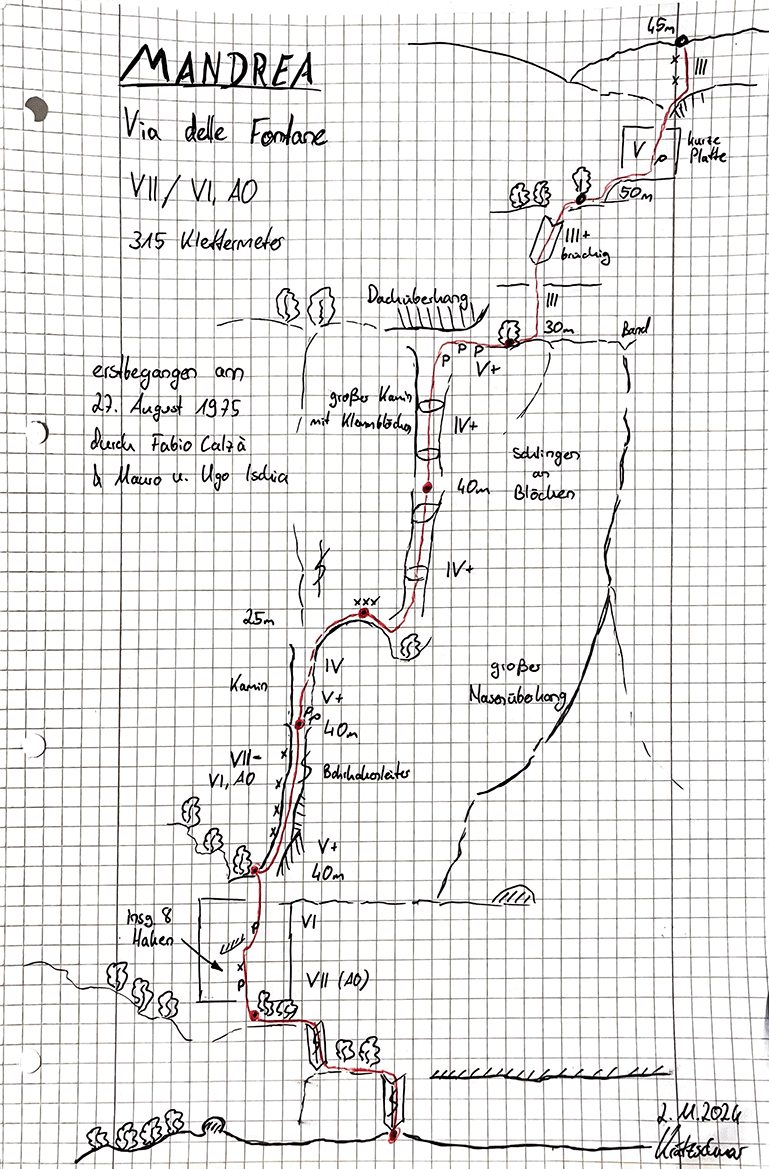 MANDREA
Via delle Fontane
VII / VI, A0
315 Klettermeter
45m
III
V
kurze
Platte
P
50m
III+
brüchig
III
Dachüberhang
30m
Band
P P P
V+
erstbegangen am
27. August 1975
durch Fabio Calzà
& Mauro u. Ugo Ischia
großer Kamin
mit Klemmblöcken
IV+
Schlingen
an
Blöcken
40m
IV+
xxx
25m
Kamin
IV
V+
großer
Nasenüberhang
PP
40m
VII-
VI, A0
Bohrhakenleiter
V+
40m
insg. 8
Haken
P
VI
x
P
VII (A0)
2.11.2024